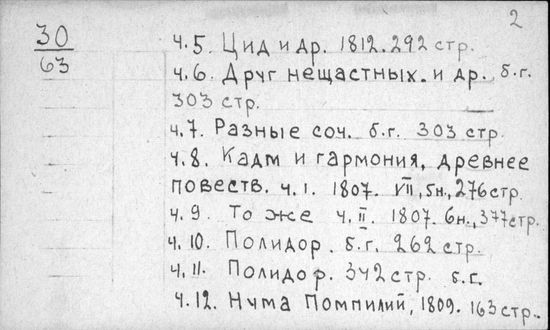 2
30
63
ч.5. Цид и др. 1812. 292 стр.
ч.6. Друг нещастных. и др. б.г.
303 стр.
ч.7. Разные соч. б.г. 303 стр.
ч.8. Кадм и гармония, древнее
повеств. ч.1. 1807. VII, бн., 276 стр.
ч.9. То же ч. II. 1807. бн., 377 стр.
ч.10. Полидор. б.г. 262 стр.
ч.11. Полидор. 342 стр. б.г.
ч.12. Нума Помпилий, 1809. 163 стр.